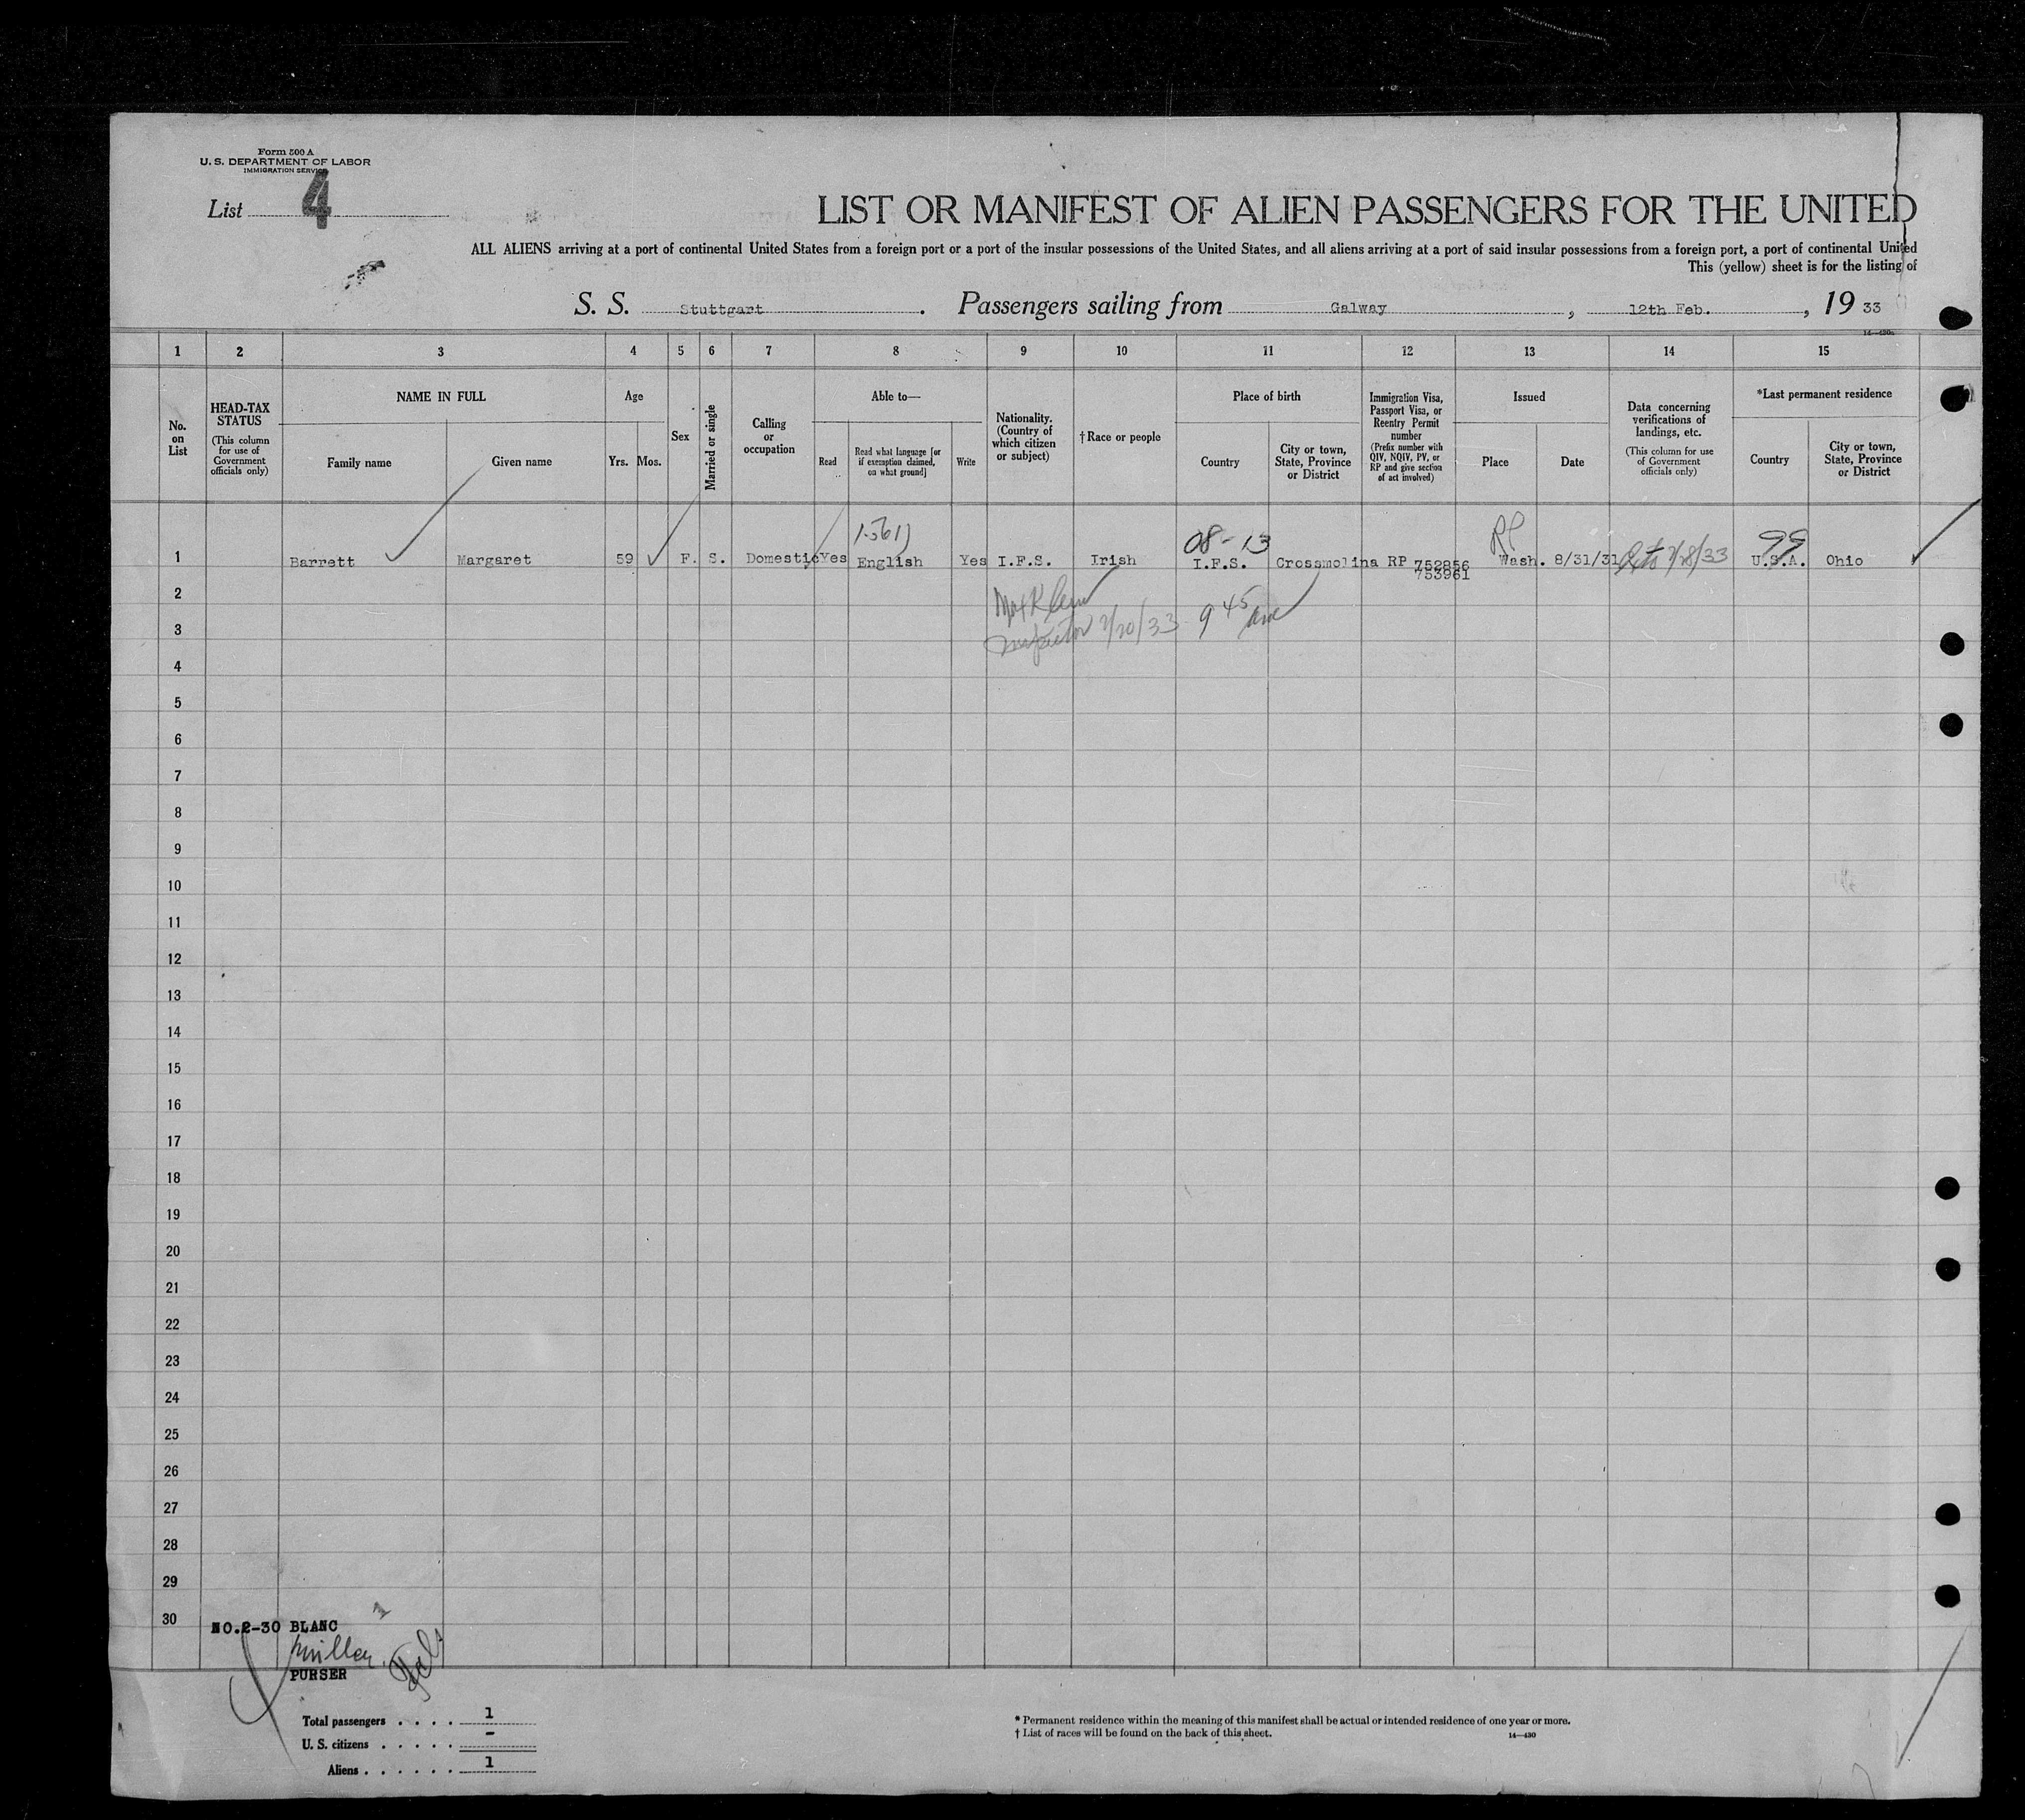 Form 500 A
U. S. DEPARTMENT OF LABOR
IMMIGRATION SERVICE
List 4
LIST OR MANIFEST OF ALIEN PASSENGERS FOR THE UNITED
ALL ALIENS arriving at a port of continental United States from a foreign port or a port of the insular possessions of the United States, and all aliens arriving at a port of said insular possessions from a foreign port, a port of continental United
This (yellow) sheet is for the listing of
S. S. Stuttgart. Passengers sailing from Galway, 12th Feb., 19 33
14—430
1 2 3 4 5 6 7 8 9 10 11 12 13 14 15
No. on List
HEAD-TAX STATUS
(This column for use of Government officials only)
NAME IN FULL
Family name
Given name
Age
Yrs. Mos.
Sex
Married or single
Calling or occupation
Able to—
Read
Read what language [or if exemption claimed, on what ground]
Write
Nationality. (Country of which citizen or subject)
†Race or people
Place of birth
Country
City or town, State, Province or District
Immigration Visa, Passport Visa, or Reentry Permit number
(Prefix number with QIV, NQIV, PV, or RP and give section of act involved)
Issued
Place
Date
Data concerning verifications of landings, etc.
(This column for use of Government officials only)
*Last permanent residence
Country
City or town, State, Province or District
08-13 RP 99
1 Barrett Margaret 59 F. S. Domestic Yes English Yes I.F.S. Irish I.F.S. Crossmolina RP 752856 Wash. 8/31/31 U.S.A. Ohio
753961
2
Inspector 2/20/33 9 45 am
3
4
5
6
7
8
9
10
11
12
13
14
15
16
17
18
19
20
21
22
23
24
25
26
27
28
29
30
NO.2-30 BLANC
Miller
PURSER
Total passengers . . . . 1
U. S. citizens . . . . . –
Aliens . . . . . . 1
* Permanent residence within the meaning of this manifest shall be actual or intended residence of one year or more.
† List of races will be found on the back of this sheet.
14—430